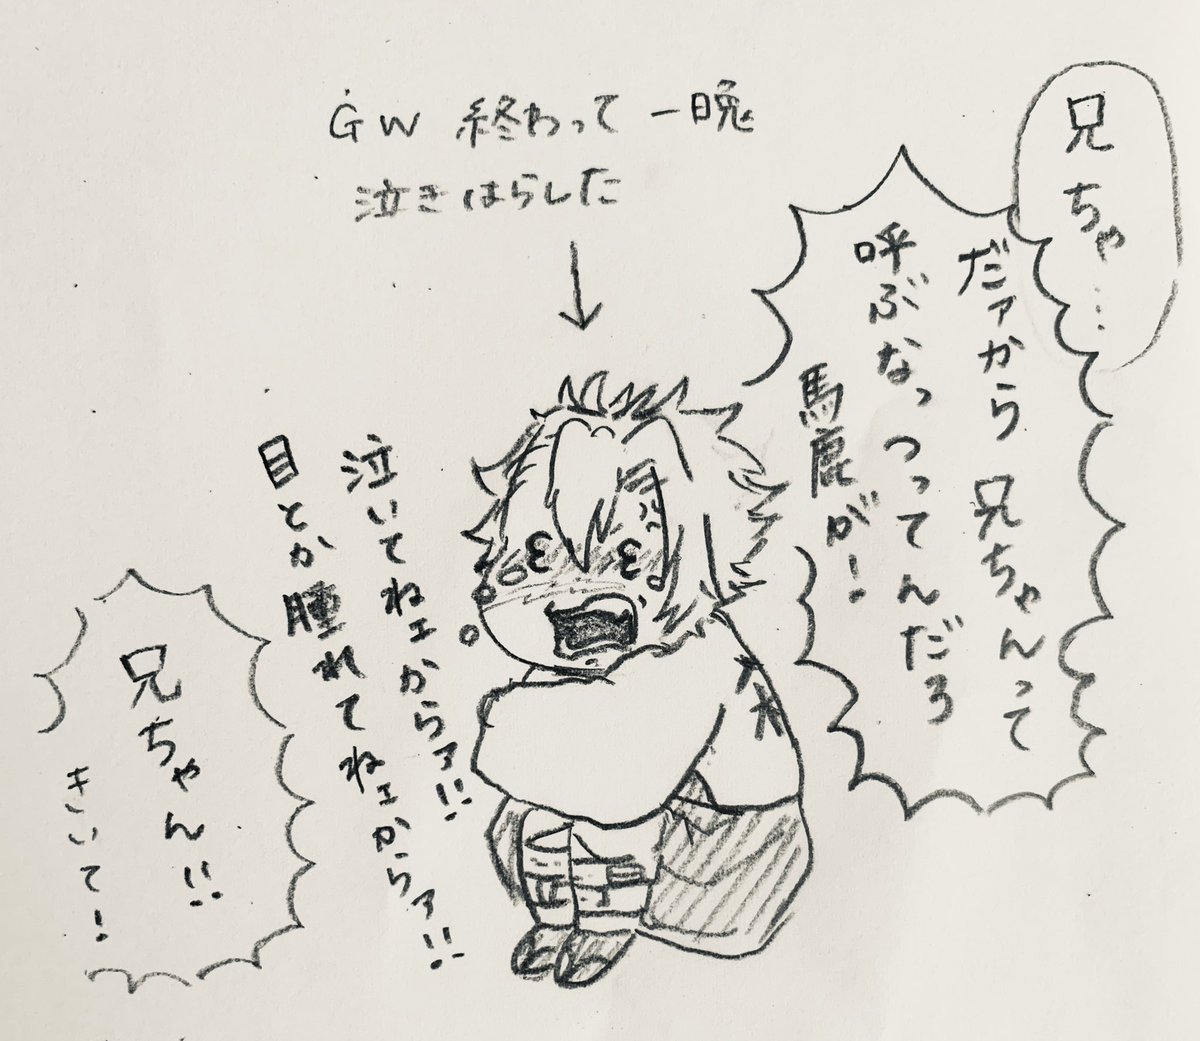 GW 終わって 一晩
泣きはらした
兄ちゃ…
だァから兄ちゃんって
呼ぶなっつってんだろ
馬鹿が!
泣いてねェからァ!!
目とか腫れてねェからァ!!
兄ちゃん!!
きいて!